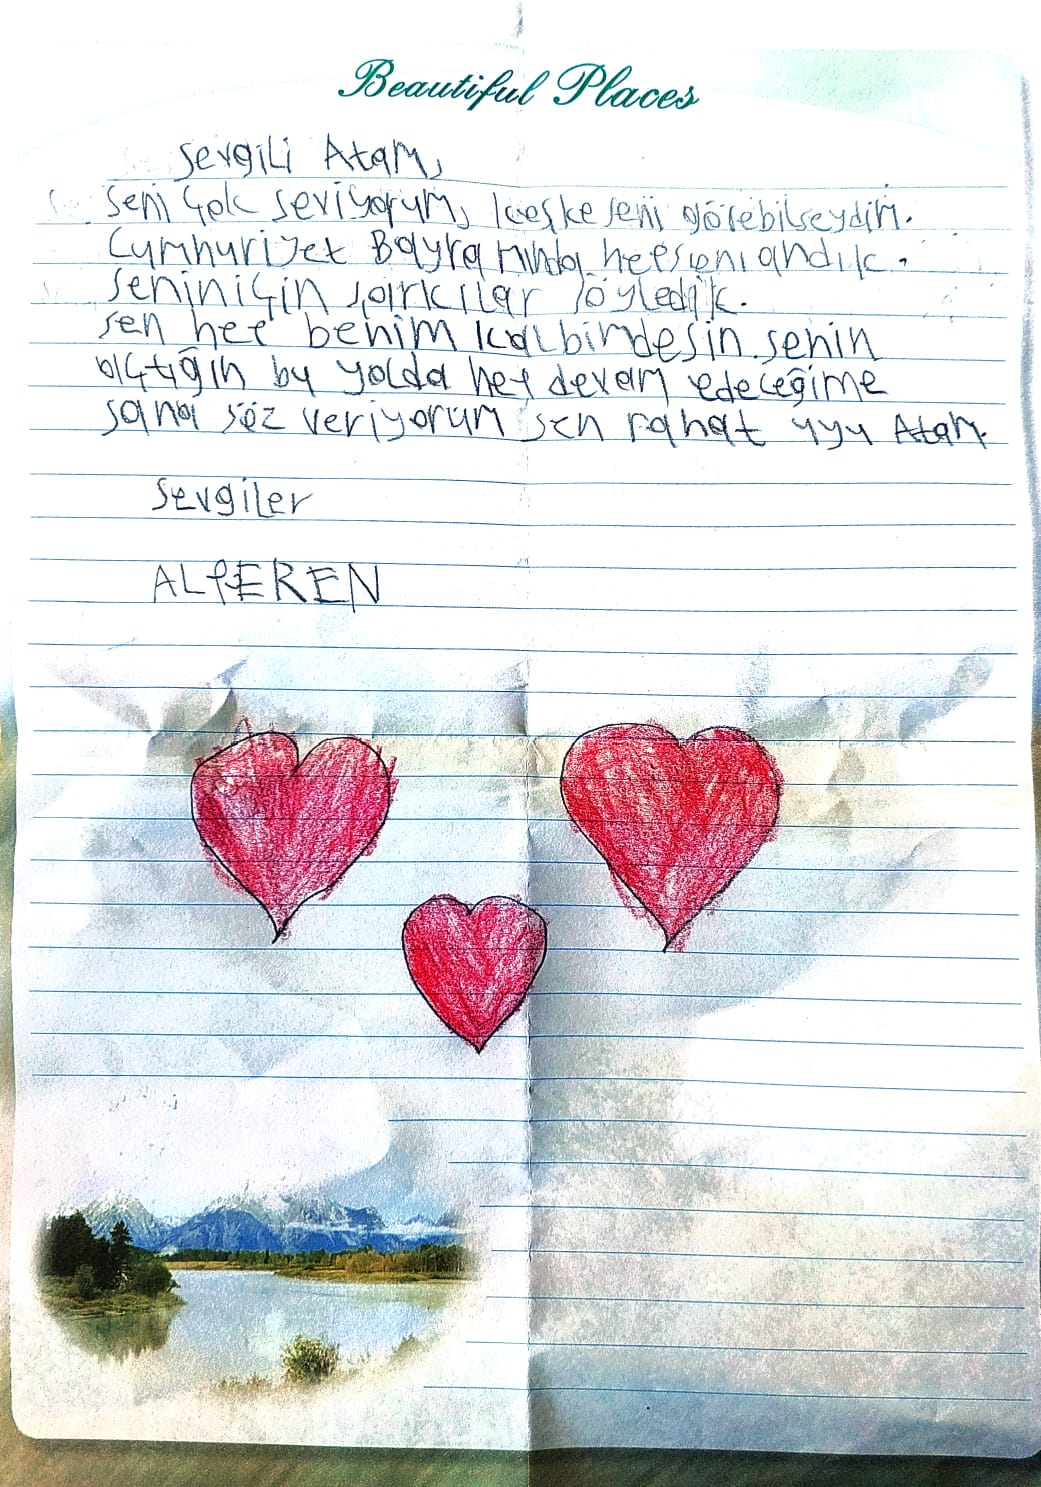 Beautiful Places
Sevgili Atam,
Seni çok seviyorum, keşke seni görebilseydim.
Cumhuriyet Bayramında hep seni andık.
Senin için şarkılar söyledik.
Sen hep benim kalbimdesin. Senin
açtığın bu yolda hep devam edeceğime
sana söz veriyorum sen rahat uyu Atam.
Sevgiler
ALPEREN